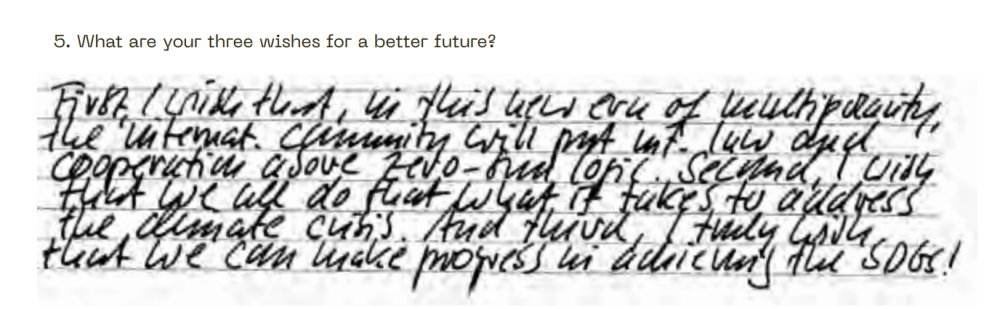 5. What are your three wishes for a better future?
First I wish that, in this new era of multipolarity,
the internat. community will put int. law and
cooperation above zero-sum logic. Second, I wish
that we all do that what it takes to address
the climate crisis. And third, I truly wish,
that we can make progress in achieving the SDGs!